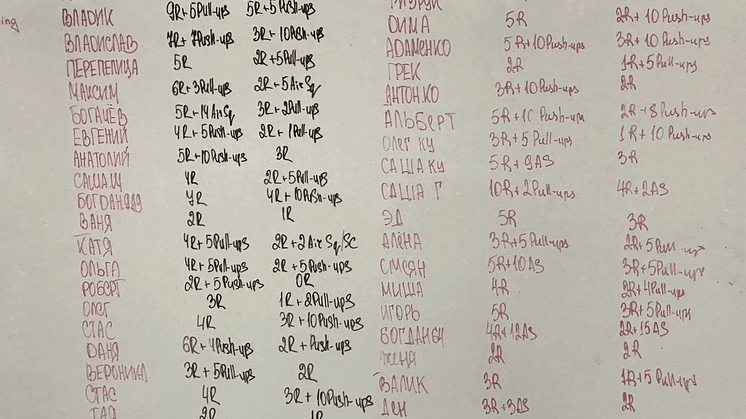 ing
ВЛАДИК 9R+5Pull-ups 5R+5Push-ups
ВЛАДИСЛАВ 7R+7Push-ups 3R+10Push-ups
ПЕРЕПЕЛИЦА 5R 2R+5Pull-ups
МАКСИМ 6R+3Pull-ups 2R+5Air Sq
БОГАЧЁВ 5R+14AirSq 3R+2Pull-ups
ЕВГЕНИЙ 4R+5Push-ups 2R+1Pull-ups
АНАТОЛИЙ 5R+10Push-ups 3R
САШАЩ 4R 2R+5Pull-ups
БОГДАН 4R 4R+10Push-ups
ВАНЯ 2R 1R
КАТЯ 4R+5Pull-ups 2R+2Air Sq/SC
ОЛЬГА 4R+5Pull-ups 2R+5Push-ups
РОБЕРТ 2R+5Push-ups 0R
ОЛЕГ 3R 1R+2Pull-ups
СТАС 4R 3R+10Push-ups
ДАНЯ 6R+4Push-ups 2R+Push-ups
ВЕРОНИКА 3R+5Pull-ups 2R
СТАС 4R 3R+10Push-ups
2R 1R
ДИМА 5R 2R+10Push-ups
АДАМЕНКО 5R+10Push-ups 3R+10Push-ups
ГРЕК 2R 1R+5Pull-ups
АНТОНКО 3R+10Push-ups 2R
АЛЬБЕРТ 5R+10Push-ups 2R+8Push-ups
ОЛЕГ КУ 3R+5Pull-ups 1R+10Push-ups
САША КУ 5R+9AS 3R
САША Г 10R+2Pull-ups 4R+2AS
ЭД 5R 3R
АЛЁНА 3R+5Pull-ups 2R+5Pull-ups
СМЕЯН 5R+10AS 3R+5Pull-ups
МИША 4R 2R+4Pull-ups
ИГОРЬ 5R 3R+5Pull-ups
БОГДАН 4R+12AS 2R+15AS
ЖЕНЯ 2R 2R
ВАЛИК 3R 1R+5Pull-ups
ДЕН 3R+3AS 2R